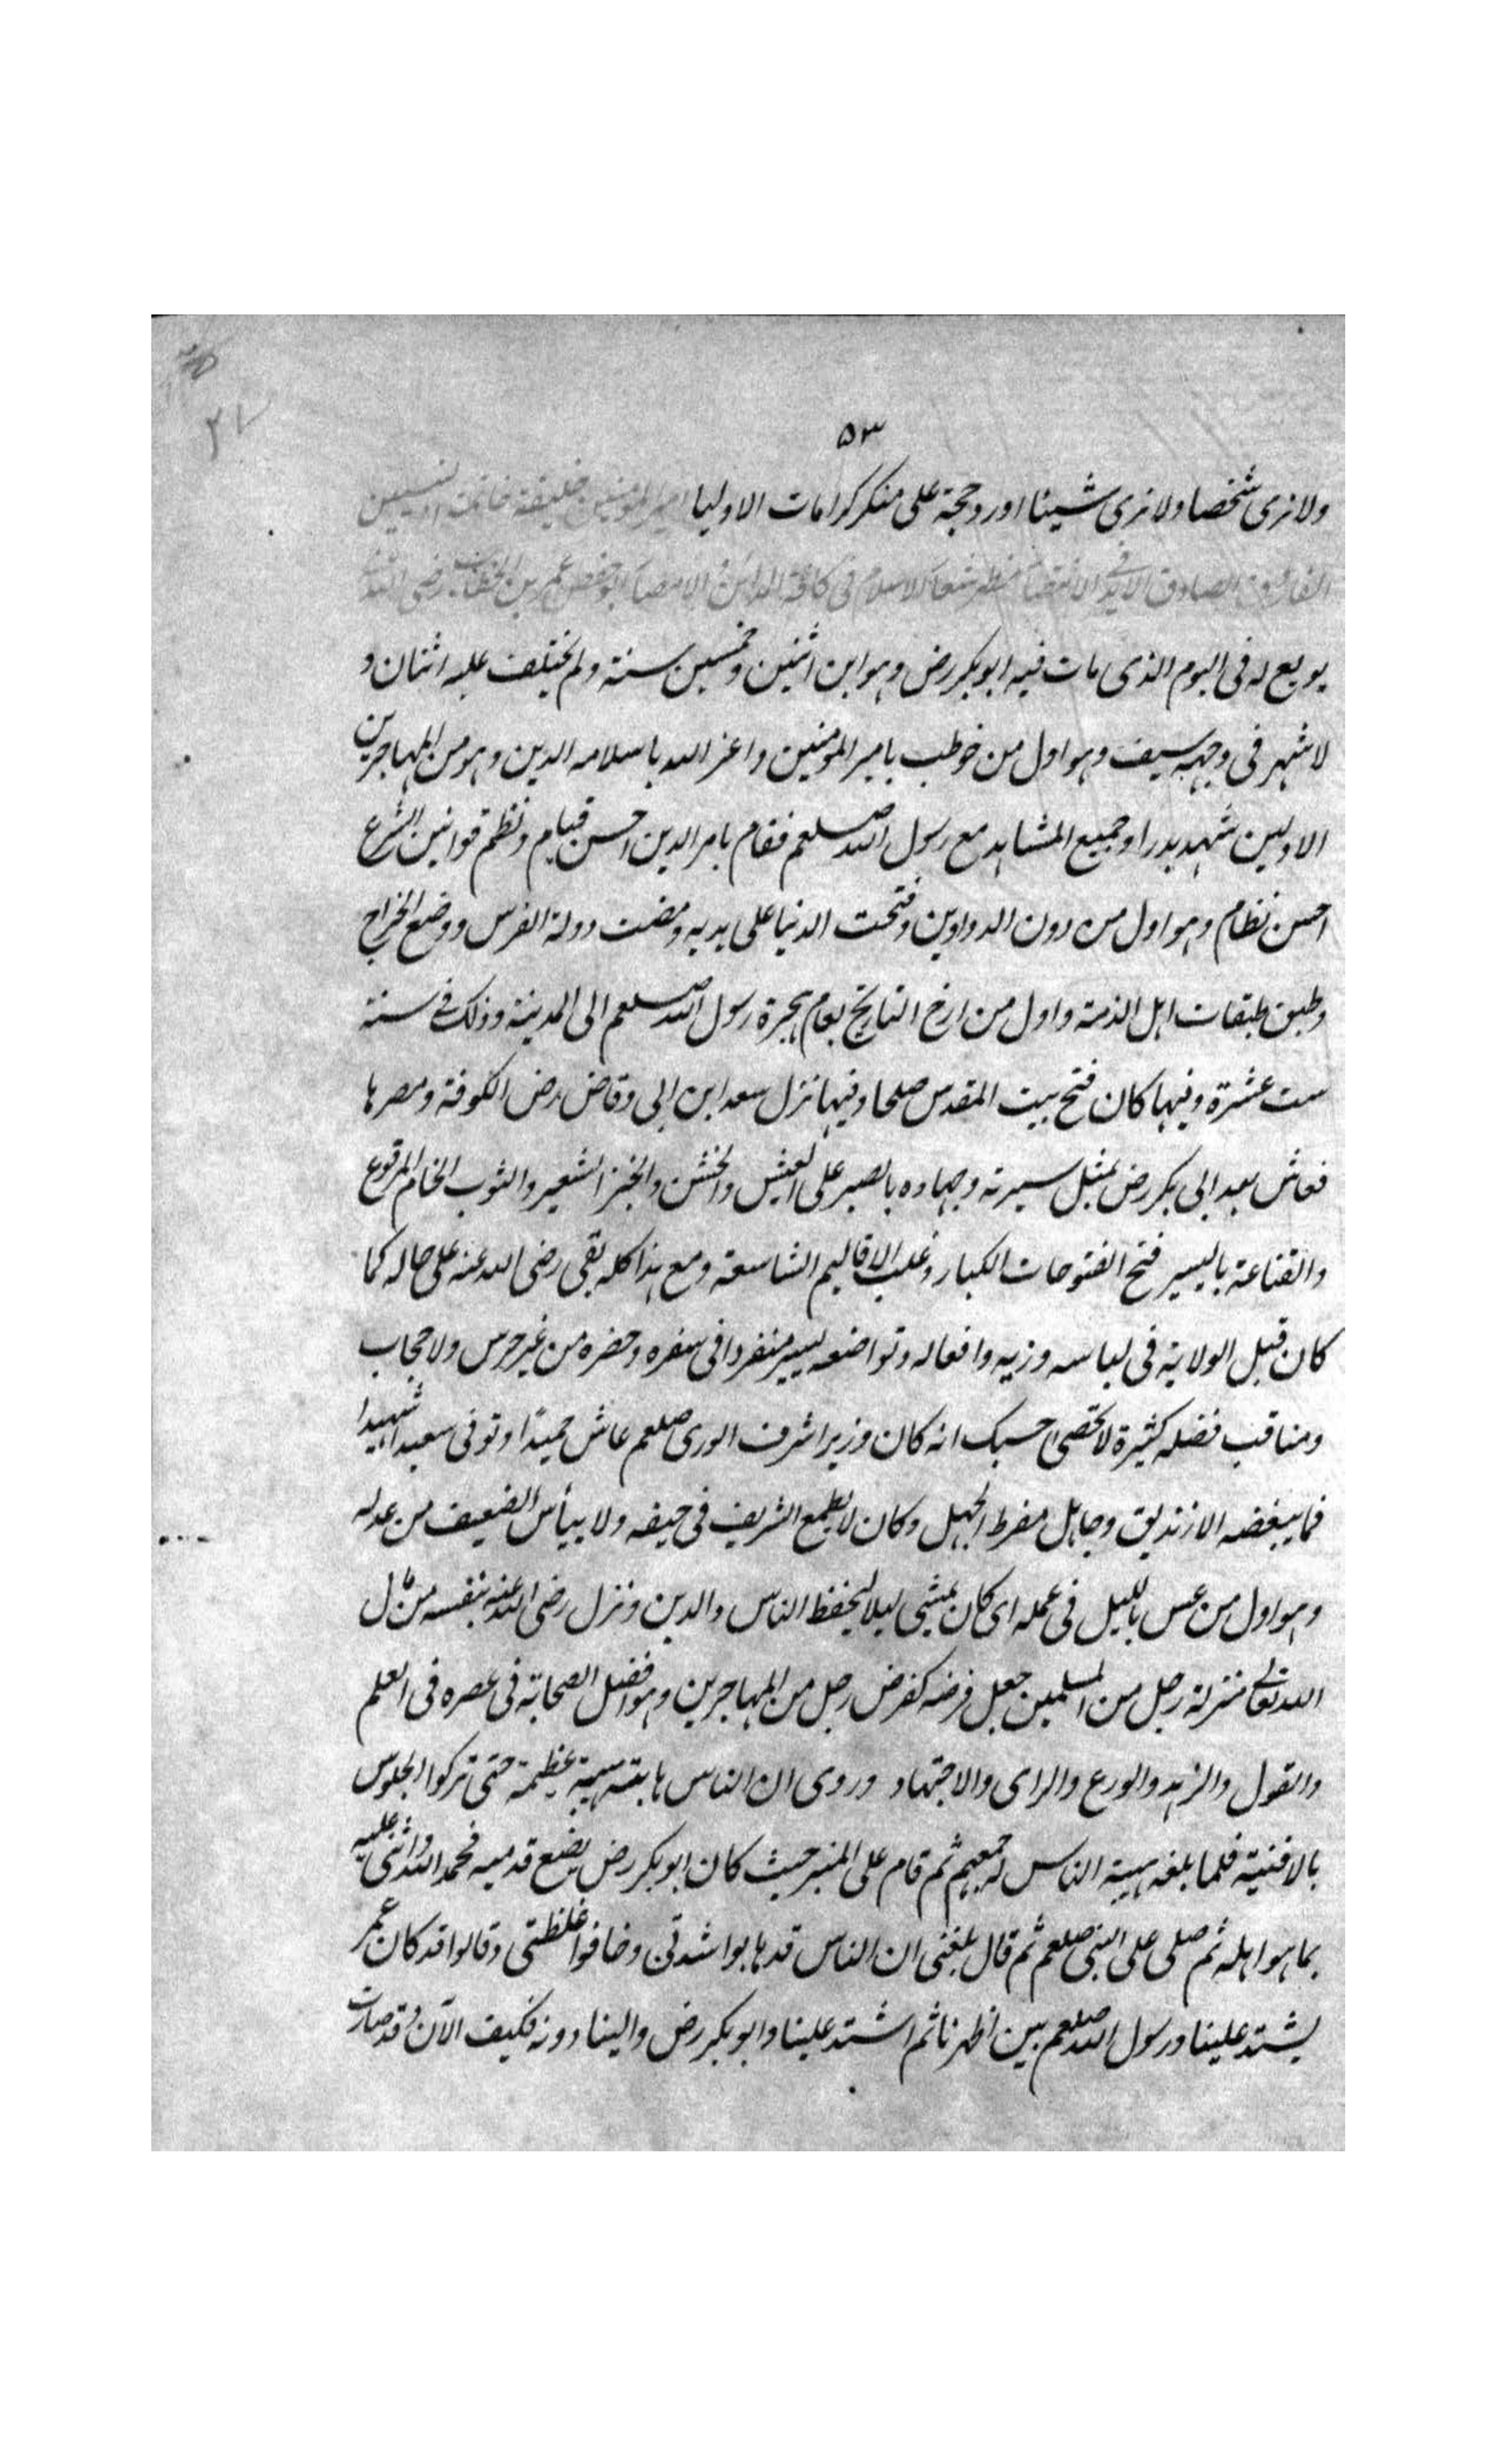 ٥٣
ولا نرى شخصا ولا نرى شيئا اورد حجة على منكر كرامات الاوليا امير المومنين خليفة خاتمة النبيين
الفاروق الصادق الاقضية مظهر شعار الاسلام فى كافة المداين والامصار ابو حفص عمر بن الخطاب رضى الله
بويع له فى اليوم الذى مات فيه ابو بكر رض وهو ابن اثنين وخمسين سنة ولم يختلف عليه اثنان و
لا شهر فى وجهه سيف وهو اول من خوطب بامير المومنين واعز الله باسلامه الدين وهو من المهاجرين
الاولين شهد بدرا وجميع المشاهد مع رسول الله صلعم فقام بامر الدين احسن قيام ونظم قوانين الشرع
احسن نظام وهو اول من دون الدواوين وفتحت الدنيا على يديه ومضت دولة الفرس ووضع الخراج
وطبق طبقات اهل الذمة واول من ارخ التاريخ بعام هجرة رسول الله صلعم الى المدينة وذلك فى سنة
ست عشرة وفيها كان فتح بيت المقدس صلحا وفيها نزل سعد ابن ابى وقاص رض الكوفة ومصرها
فعاش بعد ابى بكر رض بمثل سيرته وجهاده بالصبر على العيش والخشن والخبز الشعير والثوب الخام المرقوع
والقناعة باليسير فتح الفتوحات الكبار وغلب الاقاليم الشاسعة ومع هذا كله بقى رضى الله عنه على حاله كما
كان قبل الولاية فى لباسه وزيه وافعاله وتواضعه يسير منفردا فى سفره وحضره من غير حرس ولا حجاب
ومناقب فضله كثيرة لا تحصى حسبك انه كان وزير اشرف الورى صلعم عاش حميدا وتوفى سعيدا شهيدا
فما يبغضه الا زنديق وجاهل مفرط الجهل وكان لا يطمع الشريف فى حيفه ولا ييأس الضعيف من عدله
وهو اول من عس بالليل فى عمله اى كان يمشى ليلا ليحفظ الناس والدين ونزل رضى الله عنه بنفسه من مال
الله تعالى منزلة رجل من المسلمين جعل فرضه كفرض رجل من المهاجرين وهو افضل الصحابة فى عصره فى العلم
والقول والزهد والورع والراى والاجتهاد وروى ان الناس هابته هيبة عظيمة حتى تركوا الجلوس
بالافنية فلما بلغه هيبة الناس له جمعهم ثم قام على المنبر حيث كان ابو بكر رض يضع قدميه فحمد الله واثنى عليه
بما هو اهله ثم صلى على النبى صلعم ثم قال بلغنى ان الناس قد هابوا شدتى وخافوا غلظتى وقالوا قد كان عمر
يشتد علينا ورسول الله صلعم بين اظهرنا ثم اشتد علينا وابو بكر رض والينا دونه فكيف الآن وقد صارت